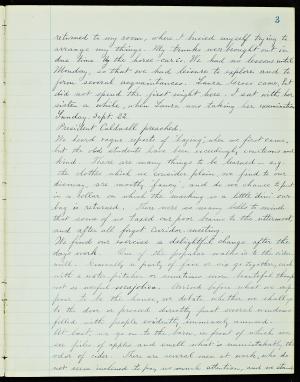 3
returned to my room, where I busied myself trying to
arrange my things. My trunks were brought out in
due time by the horse-cars. We had no lessons until
Monday, so that we had leisure to explore and to
form several acquaintances. Laura Gross came, but
did not spend the first night here. I sat with her
sister a while, when Laura was taking her examination
Sunday, Sept. 22
President Caldwell preached.
We heard vague reports of "hazing", when we first came,
but the old students have been exceedingly courteous and
kind. There are many things to be learned - e.g.
the clothes which we consider plain, we find to our
dismay, are mostly fancy, and do we chance to put
in a collar on which the marking is a little dim our
bag is returned. There were so many bells to mind
that some of us taxed our poor brains to the uttermost,
and after all forgot corridor meeting.
We find our exercise a delightful change after the
day's work. One of the popular walks is to the cider
mill. Generally a party of four or six go together, each
with a water pitcher or sometimes more beautiful though
not so useful majolica. Arrived before what we sup
pose to be the house, we debate whether we shall go
to the door or proceed directly past several windows
filled with people evidently immensely amused.
At last, we go on to the barn, in front of which we
see piles of apples and smell what is unmistakably the
odor of cider. There are several men at work, who do
not seem inclined to pay us much attention, and we stand